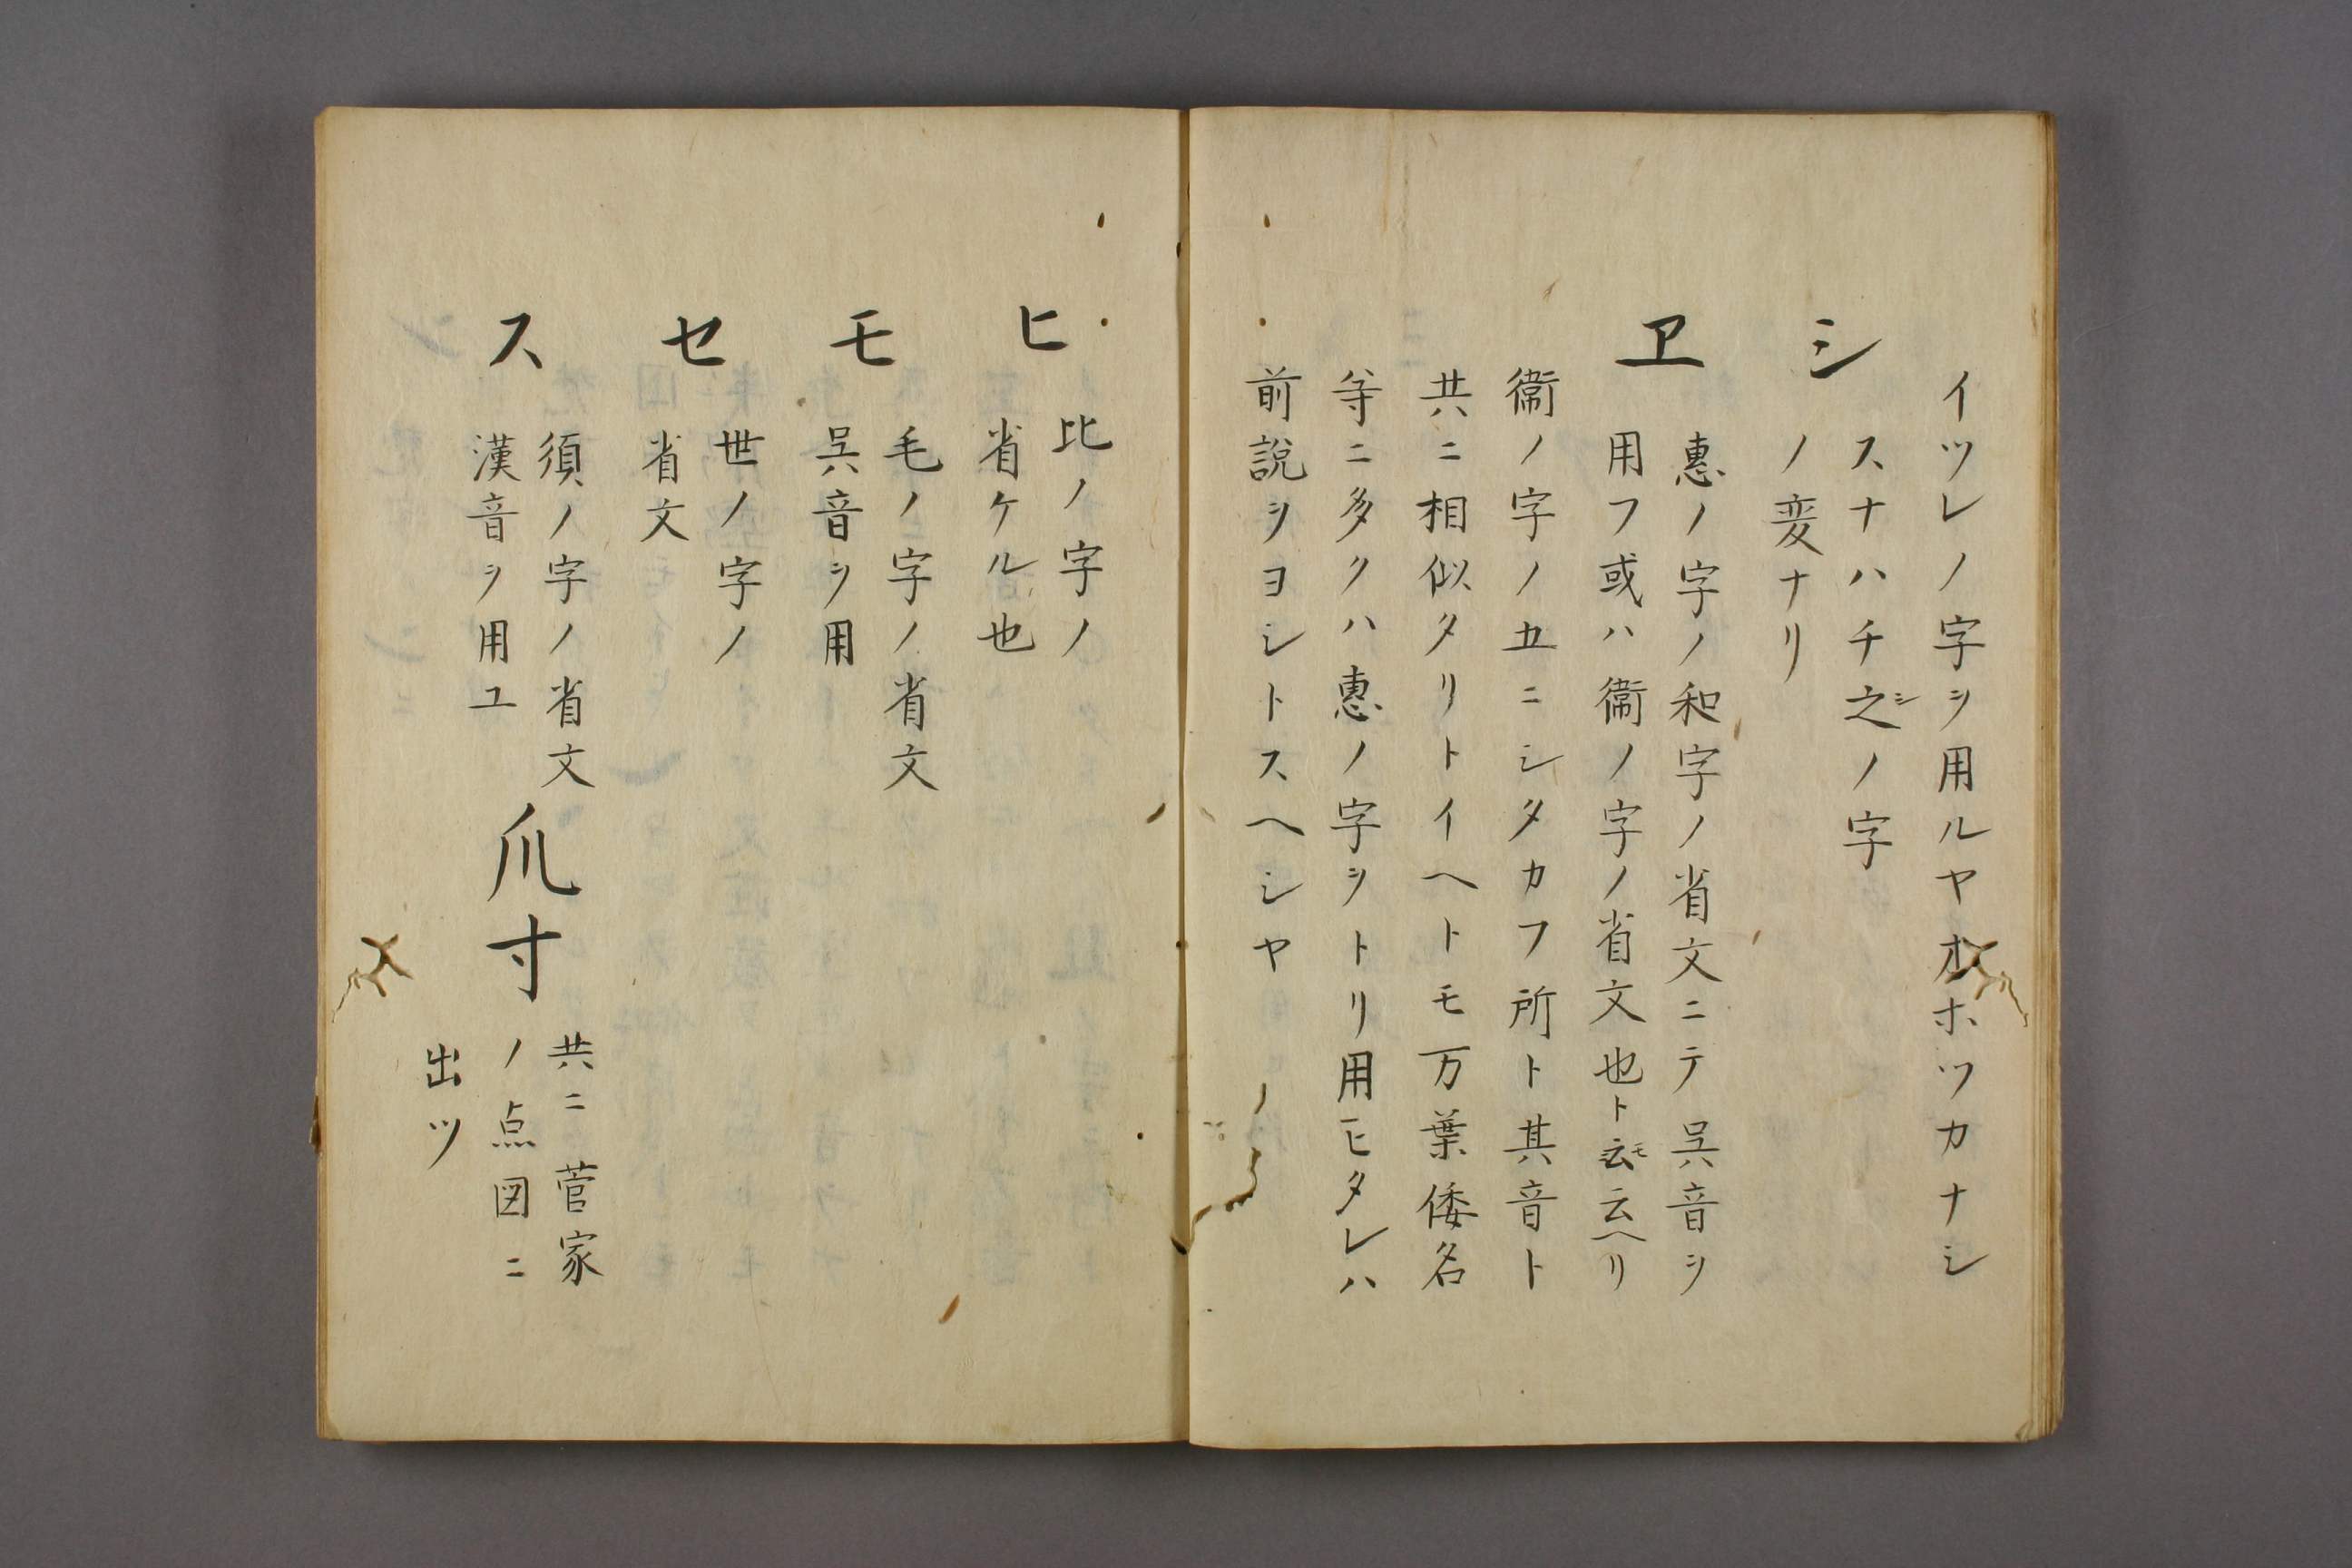 イツレノ字ヲ用ルヤオホツカナシ
シ
スナハチ之シノ字
ノ変ナリ
ヱ
惠ノ字ノ和字ノ省文ニテ呉音ヲ
用フ或ハ衞ノ字ノ省文也ト云モ云ヘリ
衞ノ字ノ五ニシタカフ所ト其音ト
共ニ相似タリトイヘトモ万葉倭名
等ニ多クハ惠ノ字ヲトリ用ヒタレハ
前説ヲヨシトスヘシヤ
ヒ
比ノ字ノ
省ケル也
モ
毛ノ字ノ省文
呉音ヲ用
セ
世ノ字ノ
省文
ス
須ノ字ノ省文
漢音ヲ用ユ
爪寸
共ニ菅家
ノ点図ニ
出ツ